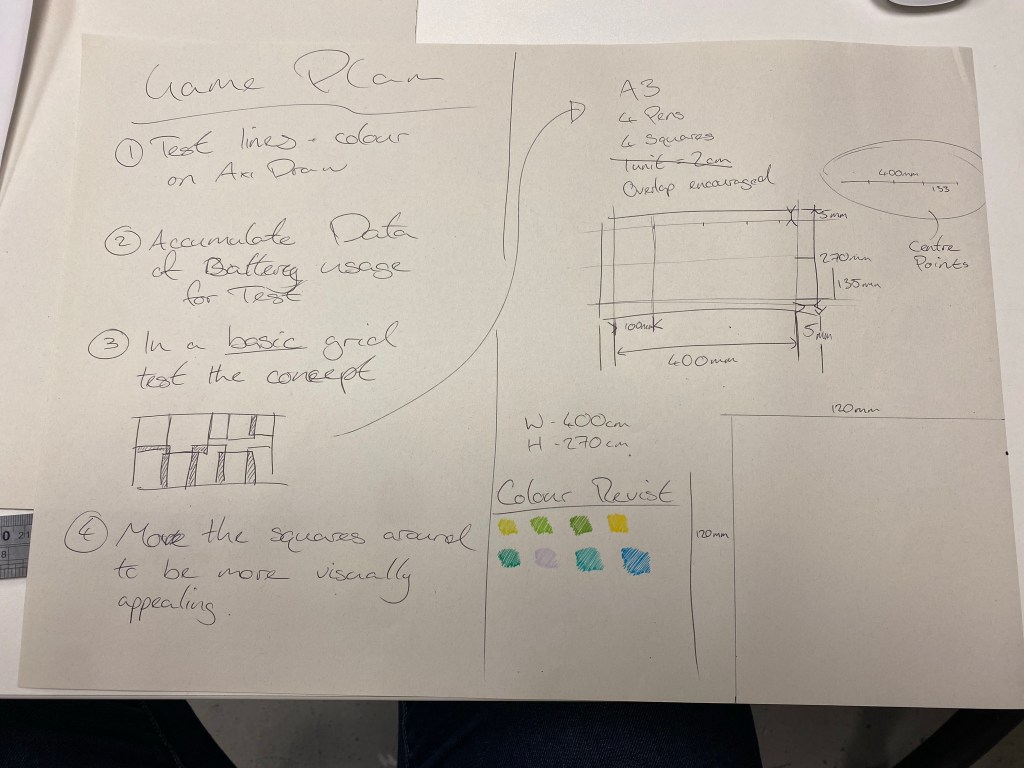 Game Plan
① Test lines + colour
on Axi Draw
② Accumulate Data
of Battery usage
for Test
③ In a basic grid
test the concept
④ Move the squares around
to be more visually
appealing.
A3
4 Pens
4 Squares
1 unit = 2cm
Overlap encouraged
5mm
270mm
135mm
100mm
400mm
5mm
400mm
133
Centre
Points
W - 400cm
H - 270cm
Colour Revist
120mm
120mm
0 21
8